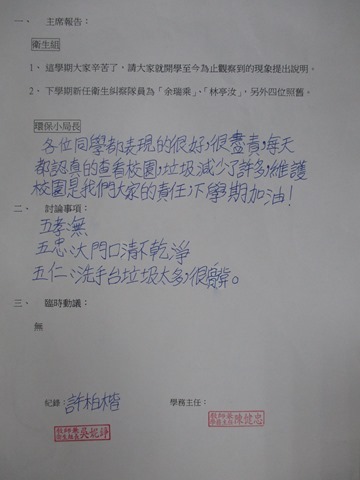 一、 主席報告：
衛生組
1、這學期大家辛苦了，請大家就開學至今為止觀察到的現象提出說明。
2、下學期新任衛生糾察隊員為「余瑞秉」、「林亭汝」，另外四位照舊。
環保小局長
各位同學都表現的很好，很盡責，每天
都認真的查看校園，垃圾減少了許多，維護
校園是我們大家的責任，下學期加油！
二、 討論事項：
五孝：無
五忠：大門口清不乾淨
五仁：洗手台垃圾太多，很髒。
三、 臨時動議：
無
紀錄：許柏楷
學務主任：
教師兼衛生組長吳妮諍
教師兼學務主任陳健忠